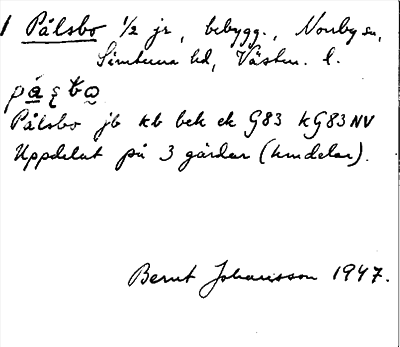 1 Pålsbo ½ jr, bebygg., Norrby sn,
Simtuna hd, Västm. l.
Pålsbo jb kb bek ek G83 KG83NV
Uppdelat på 3 gårdar (hmdelar).
Bernt Johansson 1947.